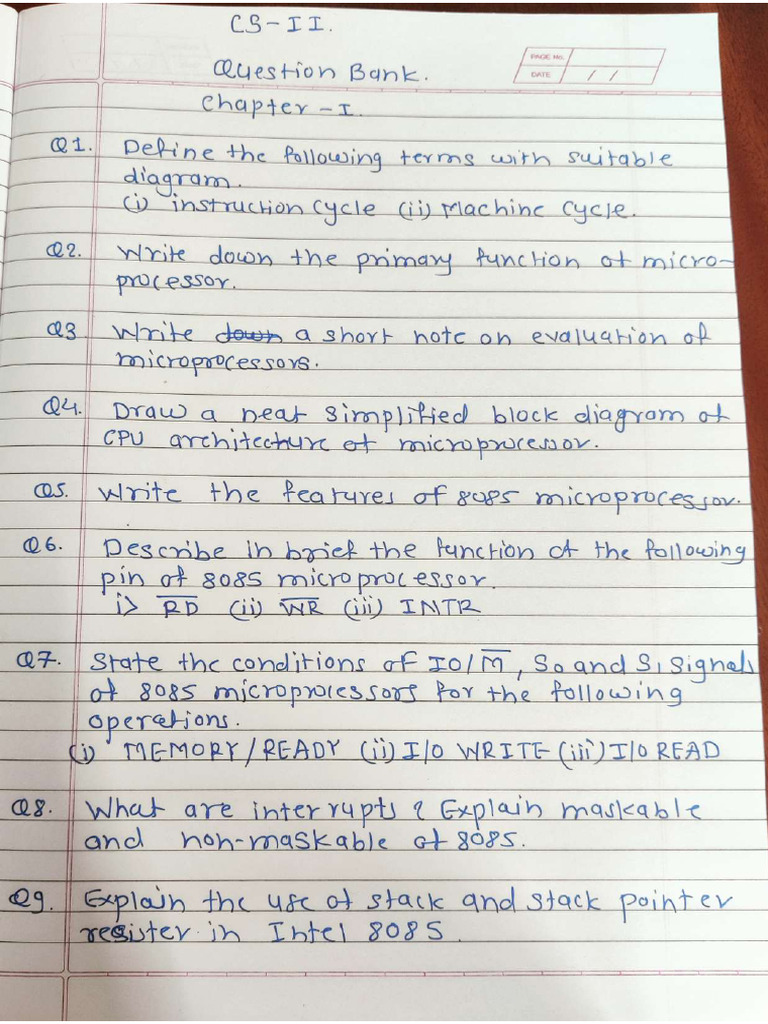 CS-II.
Question Bank.
PAGE No.
DATE / /
Chapter-I.
Q1. Define the following terms with suitable
diagram.
(i) instruction cycle (ii) Machine cycle.
Q2. Write down the primary function of micro-
processor.
Q3 Write down a short note on evaluation of
microprocessors.
Q4. Draw a neat simplified block diagram of
CPU architecture of microprocessor.
Q5. Write the features of 8085 microprocessor.
Q6. Describe in brief the function of the following
pin of 8085 microprocessor.
i> R̅D̅ (ii) W̅R̅ (iii) INTR
Q7. State the conditions of IO/M̅, S0 and S1 signals
of 8085 microprocessors for the following
operations.
(i) MEMORY/READY (ii) I/O WRITE (iii) I/O READ
Q8. What are interrupts ? Explain maskable
and non-maskable of 8085.
Q9. Explain the use of stack and stack pointer
register in Intel 8085.